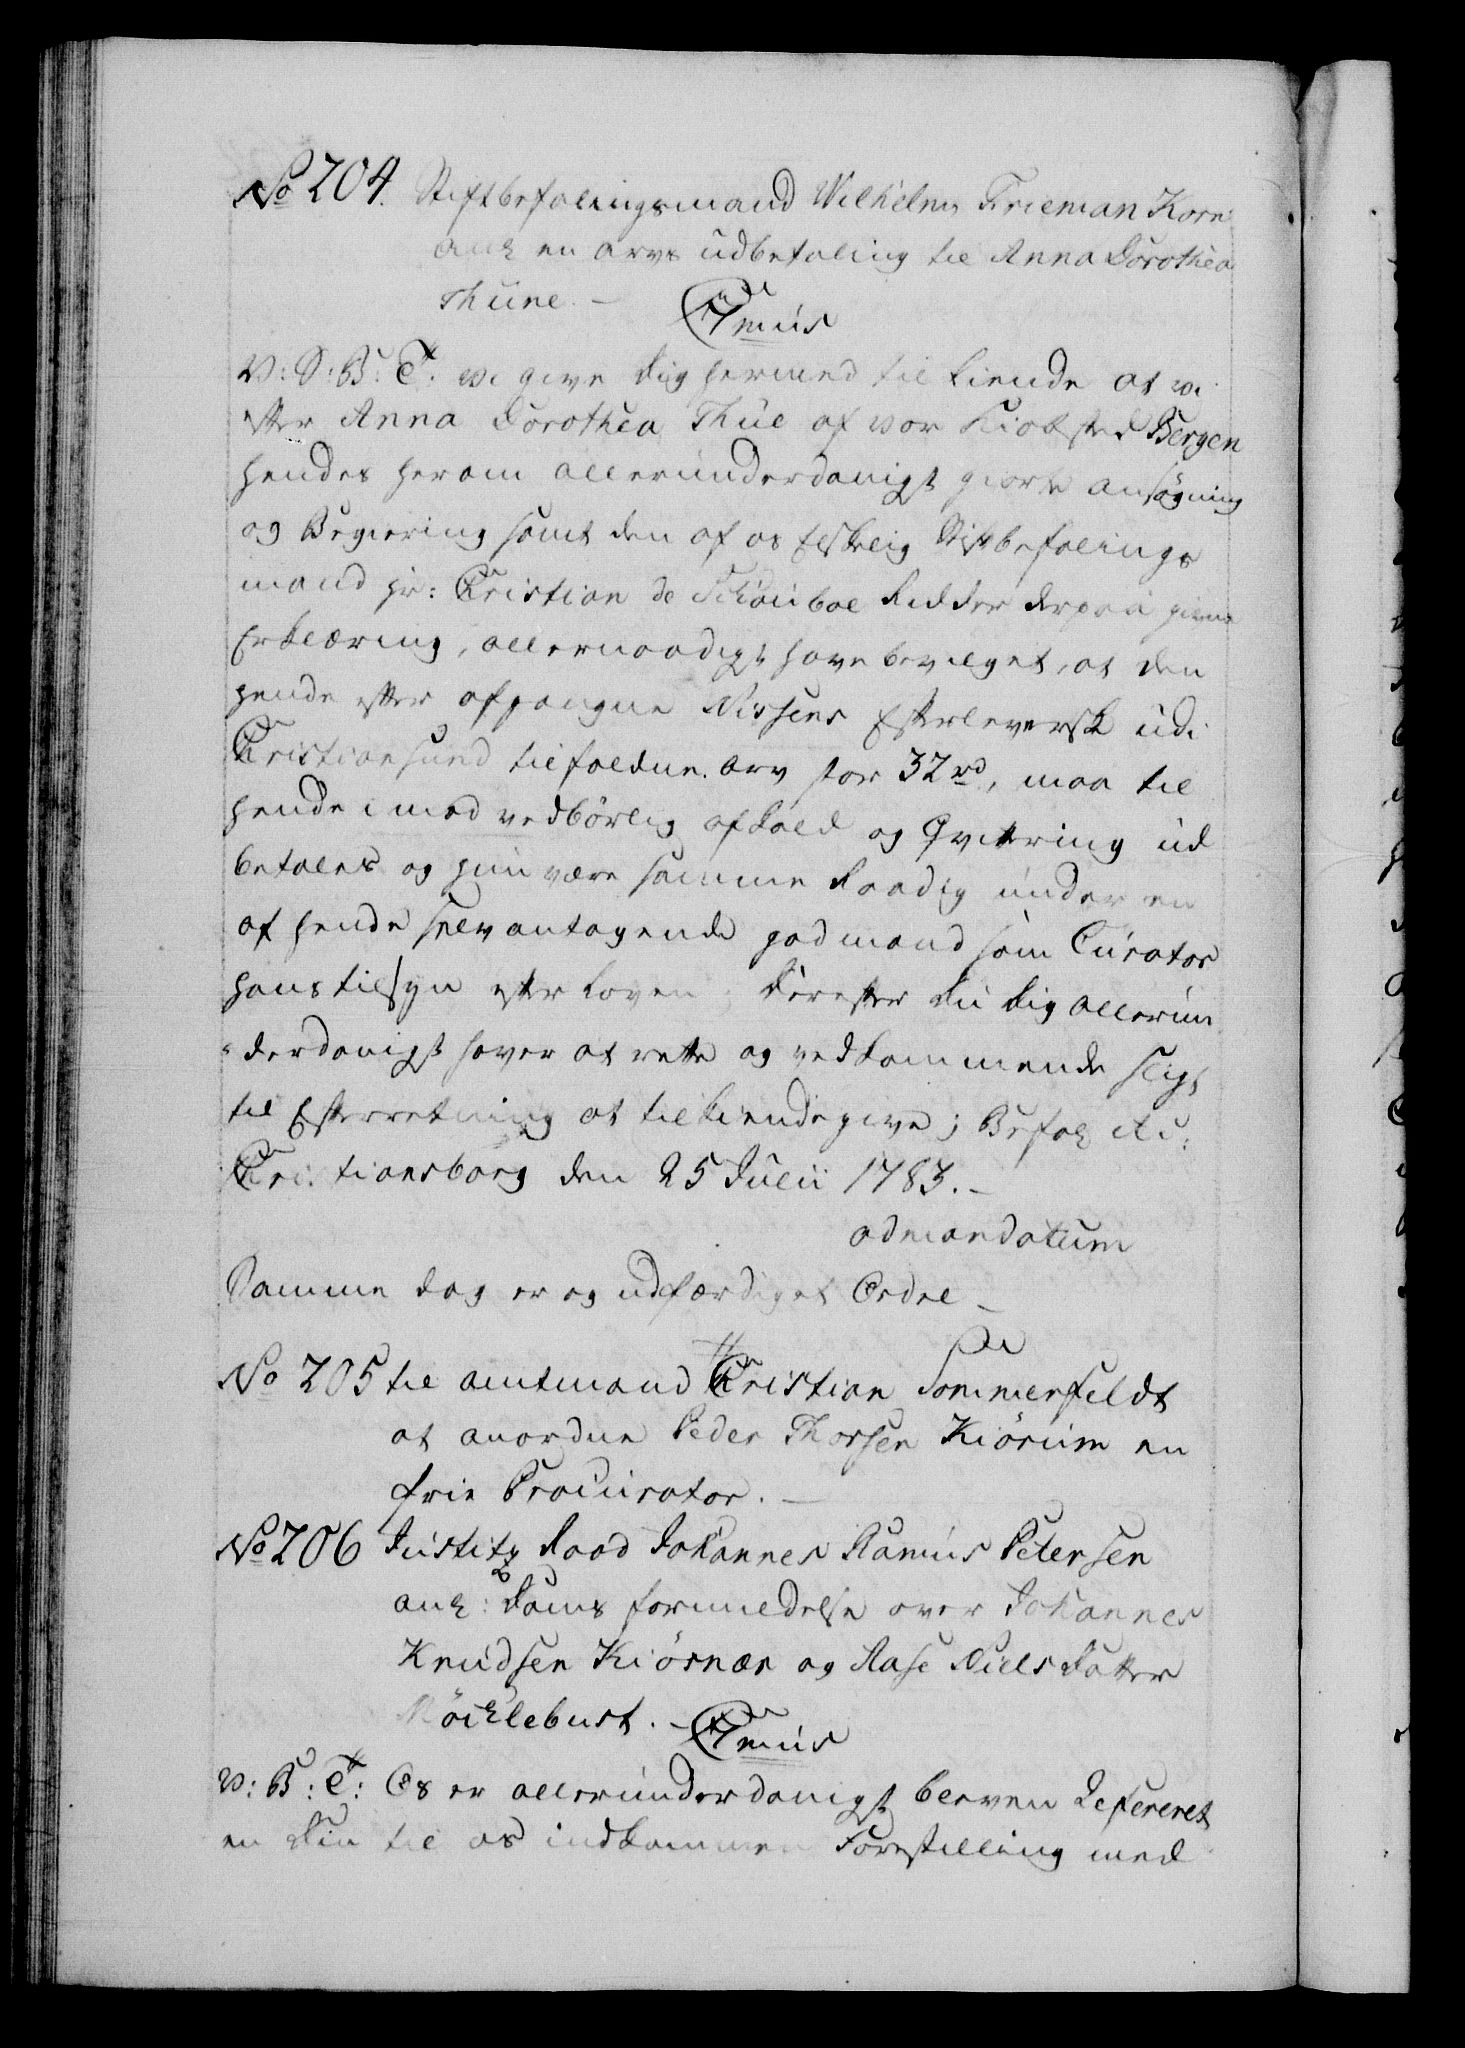 No 204. Stiftbefalingsmand Wilhelm Frieman Kore
ank en arvs udbetaling til Anna Dorothea
Thüne. —
C7mus
V: S: B: T: vi give dig hermed tilkiende at vi
efter Anna Dorothea Thüe af vor Kiøbsted Bergen
hendes herom allerunderdanigst giorte ansøgning
og Begiering samt den af os Elskelig Stiftbefalings
mand hr: Christian de Schouboe Ridder derpaa givne
Erklæring, allernaadigst have bevilget, at den
hende efter afgangne Nissens Efterleversk udi
Christiansund tilfaldne arv stor 32 rd, maa til
hende imod vedbørlig afkald og Qvittering ud
betales og hun være samme Raadig under en
af hende selv antagende god mand som Curator
hans tilsyn efter Loven; Derefter du dig allerun
-derdanigst haver at rette og vedkommende sligt
til Efterretning at tilkiendegive; Befal Ac:
Christiansborg den 25 Julii 1783. –
admandatum
Samme dag er og udfærdiget Ordre –
No 205 til amtmand Christian Sommerfeldt
at anordne Peder Thorsen Kiörum en
frie Procurator. —
No 206 Justitz Raad Johannes Ramus Petersen
ank: Doms formildelse over Johannes
Knudsen Kiörnæs og Aase Niels datter
Möcklebust. – C7mus
V: B: T: Os er allerunderdanigst bleven Refereret
en din til os indkommen Forestilling med